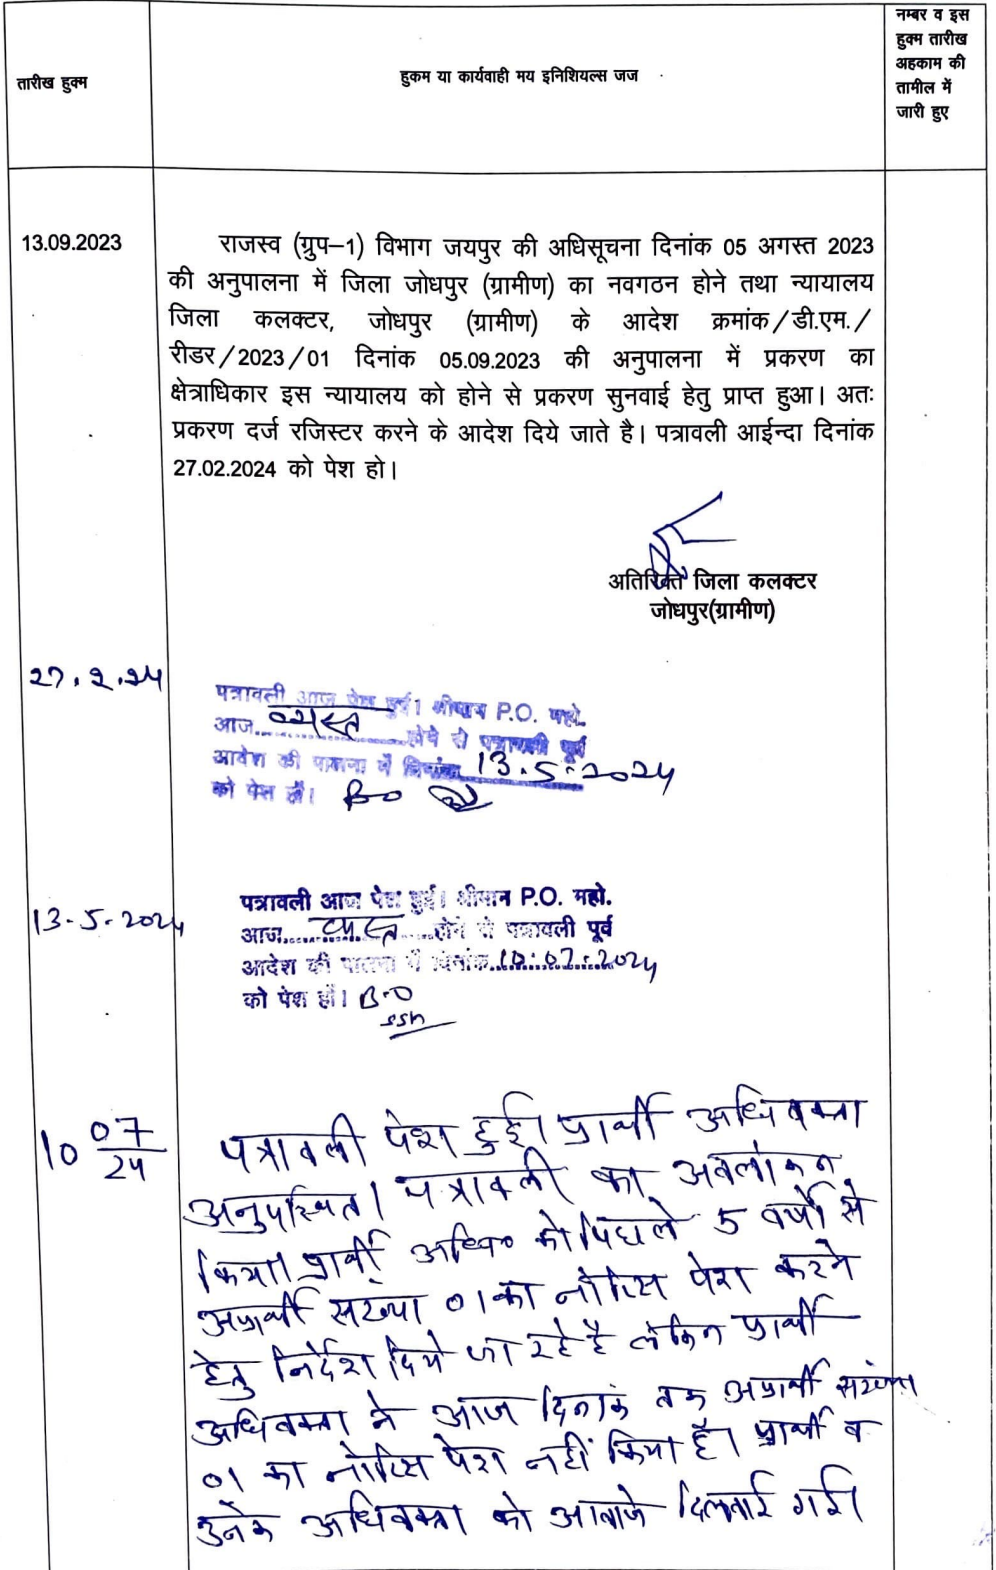 तारीख हुक्म
हुकम या कार्यवाही मय इनिशियल्स जज
नम्बर व इस
हुक्म तारीख
अहकाम की
तामील में
जारी हुए
13.09.2023
राजस्व (ग्रुप–1) विभाग जयपुर की अधिसूचना दिनांक 05 अगस्त 2023
की अनुपालना में जिला जोधपुर (ग्रामीण) का नवगठन होने तथा न्यायालय
जिला कलक्टर, जोधपुर (ग्रामीण) के आदेश क्रमांक/डी.एम./
रीडर/2023/01 दिनांक 05.09.2023 की अनुपालना में प्रकरण का
क्षेत्राधिकार इस न्यायालय को होने से प्रकरण सुनवाई हेतु प्राप्त हुआ। अतः
प्रकरण दर्ज रजिस्टर करने के आदेश दिये जाते है। पत्रावली आईन्दा दिनांक
27.02.2024 को पेश हो।
अतिरिक्त जिला कलक्टर
जोधपुर(ग्रामीण)
27.2.24
पत्रावली आज पेश हुई। श्रीमान P.O. महो.
आज..व्यस्त..होने से पत्रावली पूर्व
आदेश की पालना में दिनांक 13.5.2024
को पेश हो। B.O
13-5-2024
पत्रावली आज पेश हुई। श्रीमान P.O. महो.
आज......व्यस्त......होने से पत्रावली पूर्व
आदेश की पालना में दिनांक..10.07.2024
को पेश हो। B.O
10 07/24
पत्रावली पेश हुई। प्रार्थी अधिवक्ता
अनुपस्थित। पत्रावली का अवलोकन
किया। प्रार्थी अधि० को पिछले 5 वर्षो से
अप्रार्थी संख्या 01 का नोटिस पेश करने
हेतु निर्देश दिये जा रहे है लेकिन प्रार्थी
अधिवक्ता ने आज दिनांक तक अप्रार्थी संख्या
01 का नोटिस पेश नहीं किया है। प्रार्थी व
उनके अधिवक्ता को आवाजे दिलवाई गई।